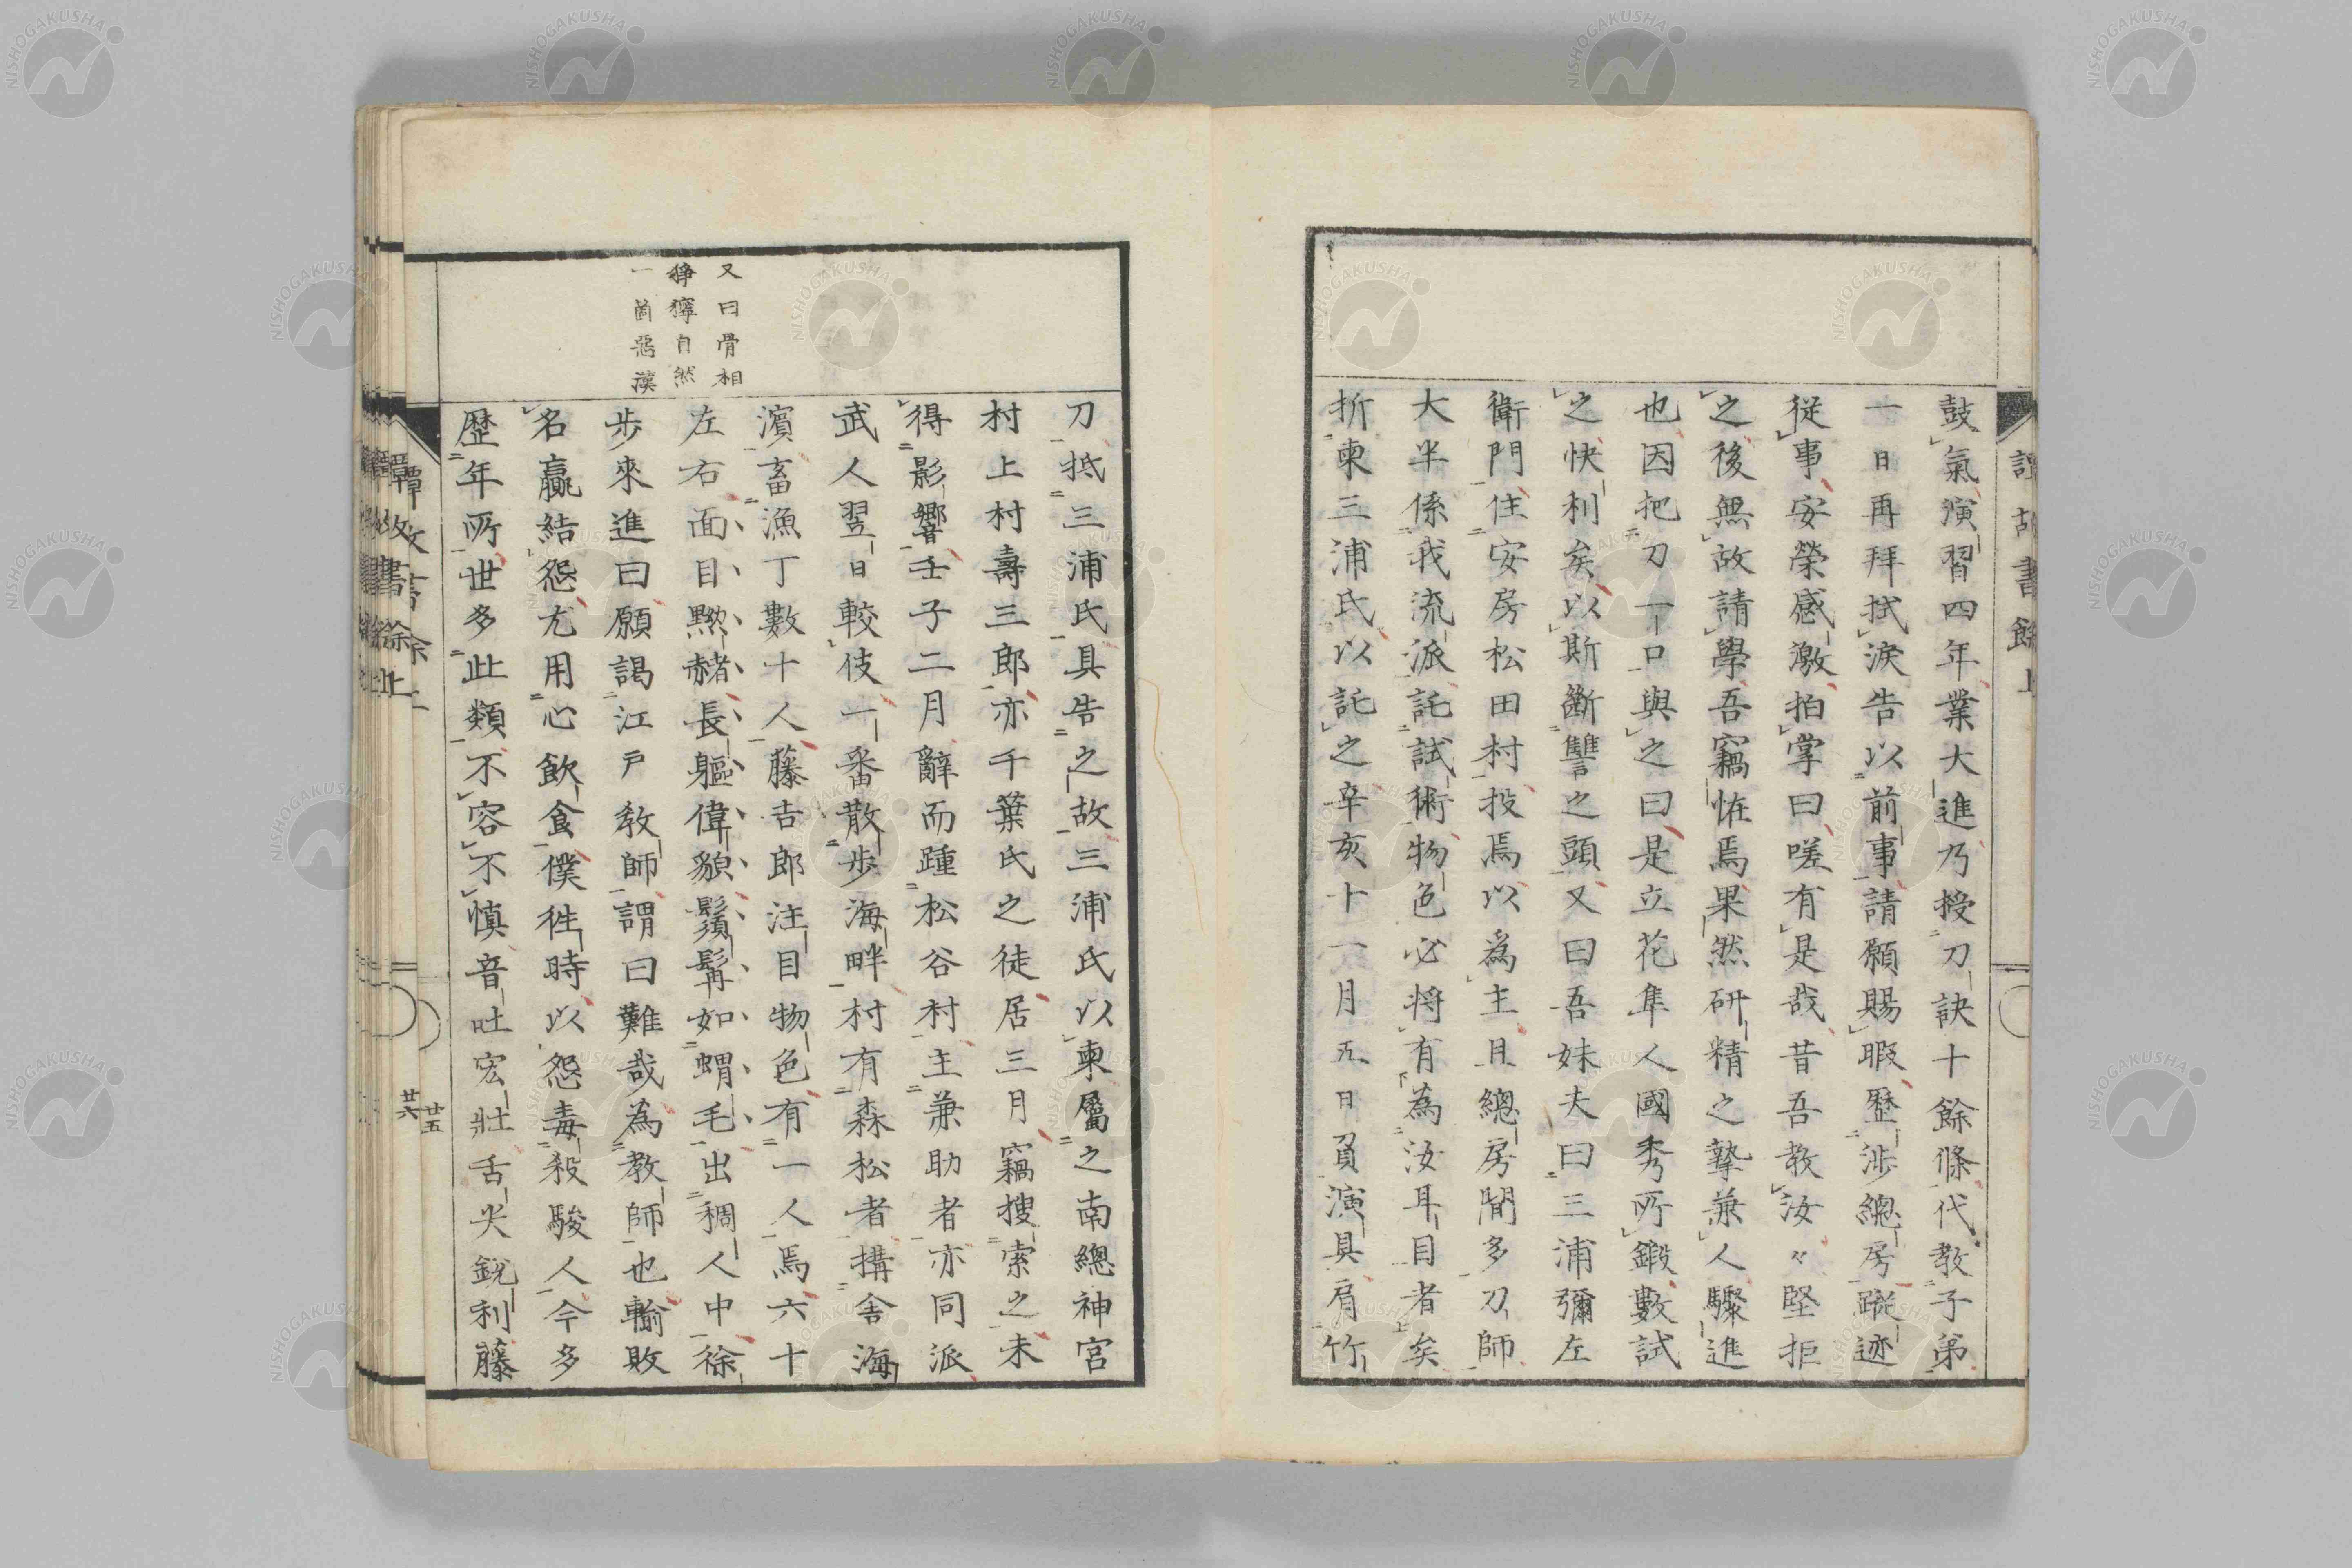 鼓氣演習四年業大進乃授刀訣十餘條代教子弟
一日再拜拭淚告以前事請願賜暇歷涉總房蹤迹
從事安榮感激拍掌曰嗟有是哉昔吾教汝々堅拒
之後無故請學吾竊恠焉果然研精之摯兼人驟進
也因把刀一口與之曰是立花隼人國秀所鍛數試
之快利矣以斯斷讐之頭又曰吾妹夫曰三浦彌左
衛門住安房松田村投焉以為主且總房間多刀師
大半係我流派託試術物色必将有為汝耳目者矣
折柬三浦氏以託之辛亥十一月五日負演具肩竹
刀抵三浦氏具告之故三浦氏以柬屬之南總神宮
村上村壽三郎亦千葉氏之徒居三月竊搜索之未
得影響壬子二月辭而踵松谷村主兼助者亦同派
武人翌日較伎一番散步海畔村有森松者搆舍海
濵畜漁丁數十人藤吉郎注目物色有一人焉六十
左右面目黥赭長軀偉貌鬚髯如蝟毛出稠人中徐
步來進曰願謁江戶教師謂曰難哉為教師也輸敗
名贏結怨尤用心飲食僕徃時以怨毒殺駿人今多
歷年所世多此類不容不慎音吐宏壯舌尖銳利藤
又曰骨相
猙獰自然
一箇惡漢
譚故書餘上
廿五
廿六